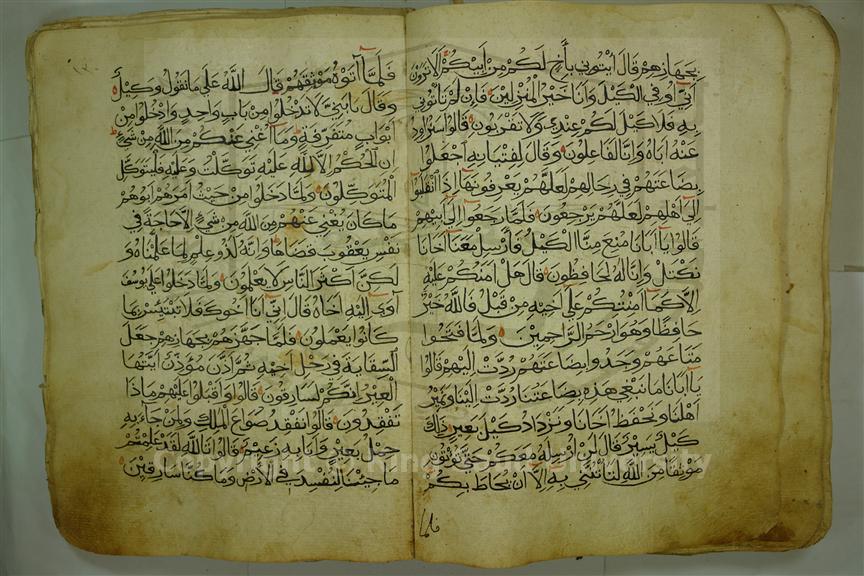 بجهازهم قال ائتوني بأخ لكم من أبيكم ألا ترون
أني أوفي الكيل وأنا خير المنزلين فإن لم تأتوني
به فلا كيل لكم عندي ولا تقربون قالوا سنراود
عنه أباه وإنا لفاعلون وقال لفتيانه اجعلوا
بضاعتهم في رحالهم لعلهم يعرفونها إذا انقلبوا
إلى أهلهم لعلهم يرجعون فلما رجعوا إلى أبيهم
قالوا يا أبانا منع منا الكيل فأرسل معنا أخانا
نكتل وإنا له لحافظون قال هل آمنكم عليه
إلا كما أمنتكم على أخيه من قبل فالله خير
حافظا وهو أرحم الراحمين ولما فتحوا
متاعهم وجدوا بضاعتهم ردت إليهم قالوا
يا أبانا ما نبغي هذه بضاعتنا ردت إلينا ونمير
أهلنا ونحفظ أخانا ونزداد كيل بعير ذلك
كيل يسير قال لن أرسله معكم حتى تؤتون
موثقا من الله لتأتنني به إلا أن يحاط بكم
فلما
فلما آتوه موثقهم قال الله على ما نقول وكيل
وقال يا بني لا تدخلوا من باب واحد وادخلوا من
أبواب متفرقة وما أغني عنكم من الله من شيء
إن الحكم إلا لله عليه توكلت وعليه فليتوكل
المتوكلون ولما دخلوا من حيث أمرهم أبوهم
ما كان يغني عنهم من الله من شيء إلا حاجة في
نفس يعقوب قضاها وإنه لذو علم لما علمناه و
لكن أكثر الناس لا يعلمون ولما دخلوا على يوسف
آوى إليه أخاه قال إني أنا أخوك فلا تبتئس بما
كانوا يعملون فلما جهزهم بجهازهم جعل
السقاية في رحل أخيه ثم أذن مؤذن أيتها
العير إنكم لسارقون قالوا وأقبلوا عليهم ماذا
تفقدون قالوا نفقد صواع الملك ولمن جاء به
حمل بعير وأنا به زعيم قالوا تالله لقد علمتم
ما جئنا لنفسد في الأرض وما كنا سارقين